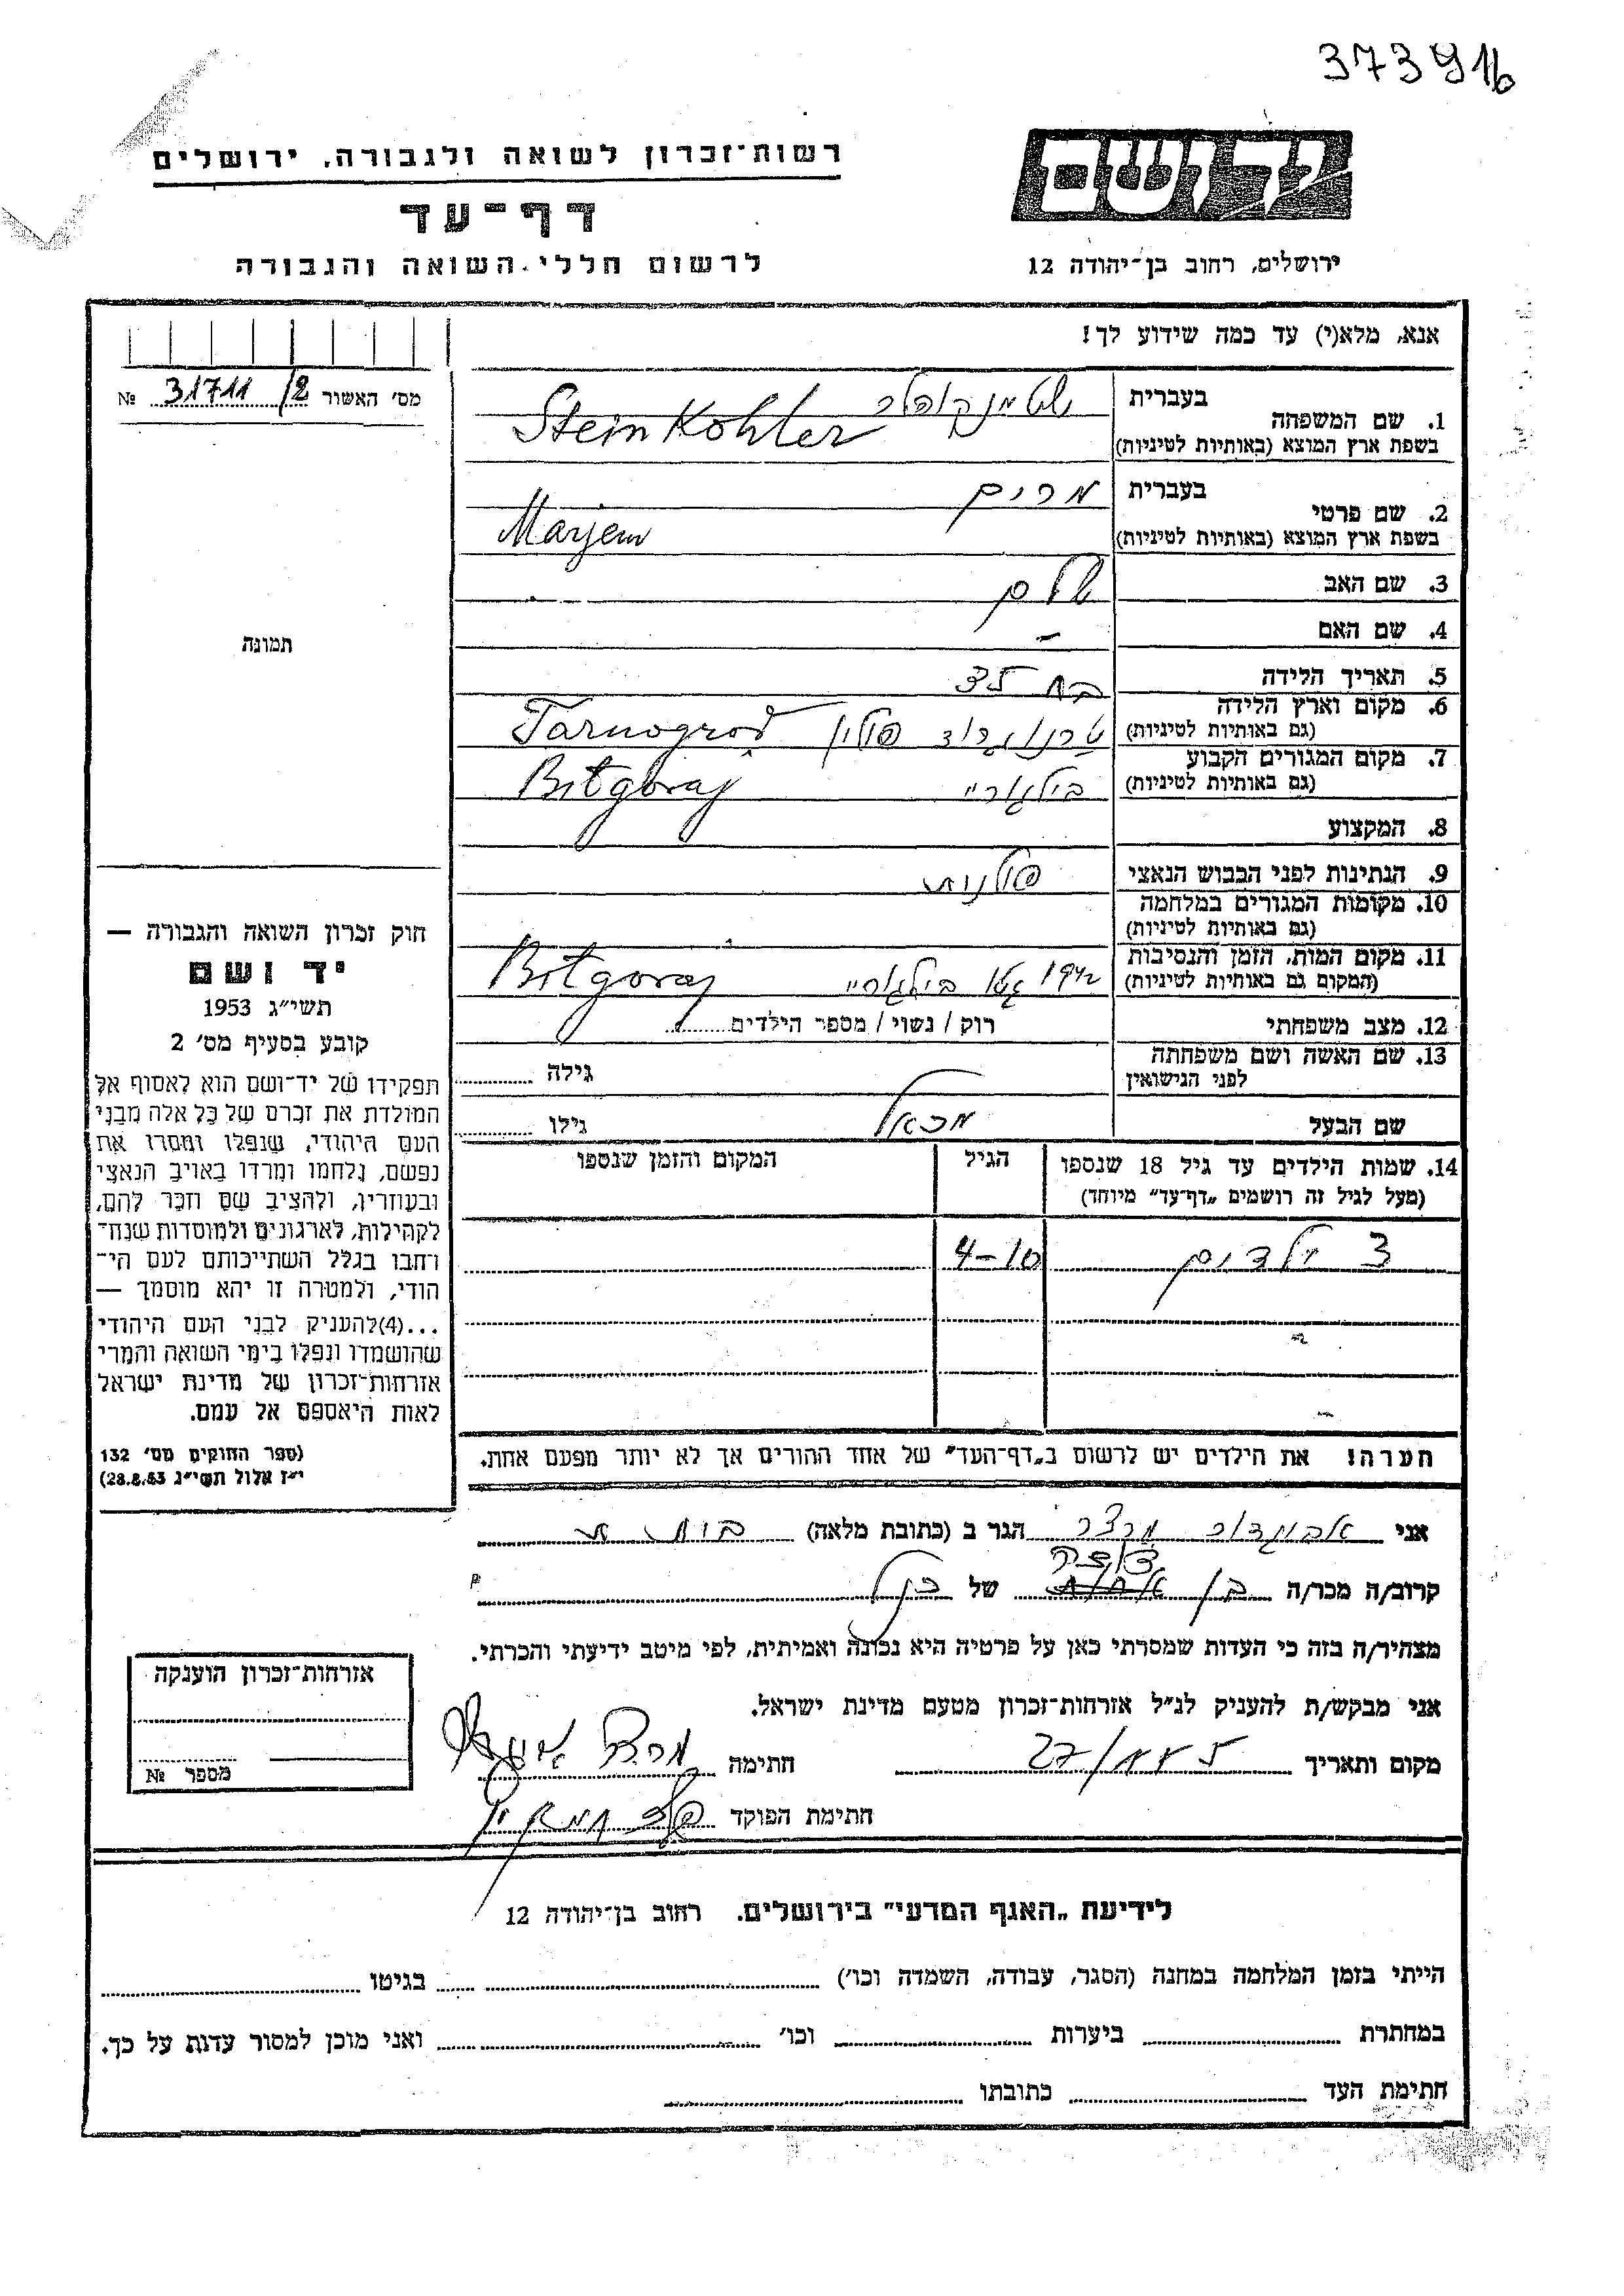 37391b
רשות־זכרון לשואה ולגבורה, ירושלים
יד ושם
דף־עד
לרשום חללי השואה והגבורה
ירושלים, רחוב בן־יהודה 12
אנא, מלא(י) עד כמה שידוע לך!
מס׳ האשור 31711/2 №
בעברית
1. שם המשפחה
בשפת ארץ המוצא (באותיות לטיניות)
Stein Kohler
בעברית מרים
2. שם פרטי
בשפת ארץ המוצא (באותיות לטיניות)
Marjem
3. שם האב שלום
4. שם האם –
5. תאריך הלידה בת 35
6. מקום וארץ הלידה
(גם באותיות לטיניות) טרנוגרוד פולין Tarnogrod
7. מקום המגורים הקבוע
(גם באותיות לטיניות) בילגוריי Biłgoraj
8. המקצוע
9. הנתינות לפני הכבוש הנאצי פולנית
10. מקומות המגורים במלחמה
(גם באותיות לטיניות)
11. מקום המות, הזמן והנסיבות
(המקום גם באותיות לטיניות) 1942 גטו בילגוריי Biłgoraj
12. מצב משפחתי רוק / נשוי / מספר הילדים
13. שם האשה ושם משפחתה
לפני הנישואין גילה
שם הבעל מכאל גילו
14. שמות הילדים עד גיל 18 שנספו הגיל המקום והזמן שנספו
(מעל לגיל זה רושמים „דף־עד״ מיוחד)
3 ילדים 4–10
הערה! את הילדים יש לרשום ב„דף־העד״ של אחד ההורים אך לא יותר מפעם אחת.
תמונה
חוק זכרון השואה והגבורה —
יד ושם
תשי״ג 1953
קובע בסעיף מס׳ 2
תפקידו של יד־ושם הוא לאסוף אל
המולדת את זכרם של כל אלה מבני
העם היהודי, שנפלו ומסרו את
נפשם, נלחמו ומרדו באויב הנאצי
ובעוזריו, ולהציב שם וזכר להם,
לקהילות, לארגונים ולמוסדות שנח־
רבו בגלל השתייכותם לעם הי־
הודי, ולמטרה זו יהא מוסמך —
...(4)להעניק לבני העם היהודי
שהושמדו ונפלו בימי השואה והמרי
אזרחות־זכרון של מדינת ישראל
לאות היאספם אל עמם.
(ספר החוקים מס׳ 132
י״ז אלול תשי״ג 28.8.53)
אני אביגדור מרצר הגר ב (כתובת מלאה) בית
קרוב/ה מכר/ה בן דודה של
מצהיר/ה בזה כי העדות שמסרתי כאן על פרטיה היא נכונה ואמיתית, לפי מיטב ידיעתי והכרתי.
אני מבקש/ת להעניק לנ״ל אזרחות־זכרון מטעם מדינת ישראל.
מקום ותאריך חתימה
חתימת הפוקד
אזרחות־זכרון הוענקה
מספר №
לידיעת „האגף המדעי״ בירושלים. רחוב בן־יהודה 12
הייתי בזמן המלחמה במחנה (הסגר, עבודה, השמדה וכו׳) בגיטו
במחתרת ביערות וכו׳ ואני מוכן למסור עדות על כך.
חתימת העד כתובתו